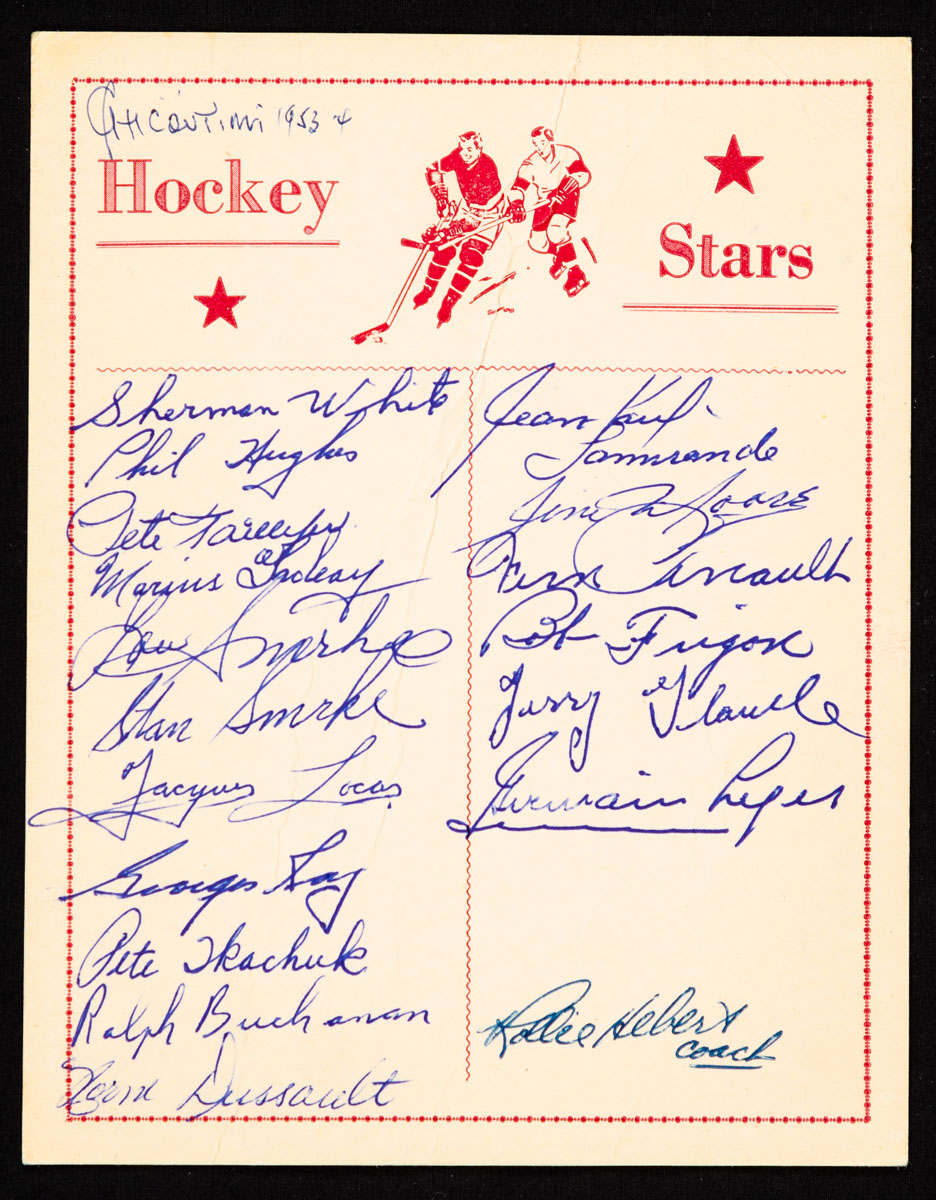 Chicoutimi 1953 4
Hockey
Stars
Sherman White
Phil Hughes
Pete
Marius Groleau
Lou Smrke
Stan Smrke
Jacques Locas
Georges Roy
Pete Tkachuk
Ralph Buchanan
Norm Dussault
Jean Paul
Lamirande
Jim Moore
Fern Perreault
Bob Frigon
Gerry Glaude
Germain Leger
Rollie Hebert
coach